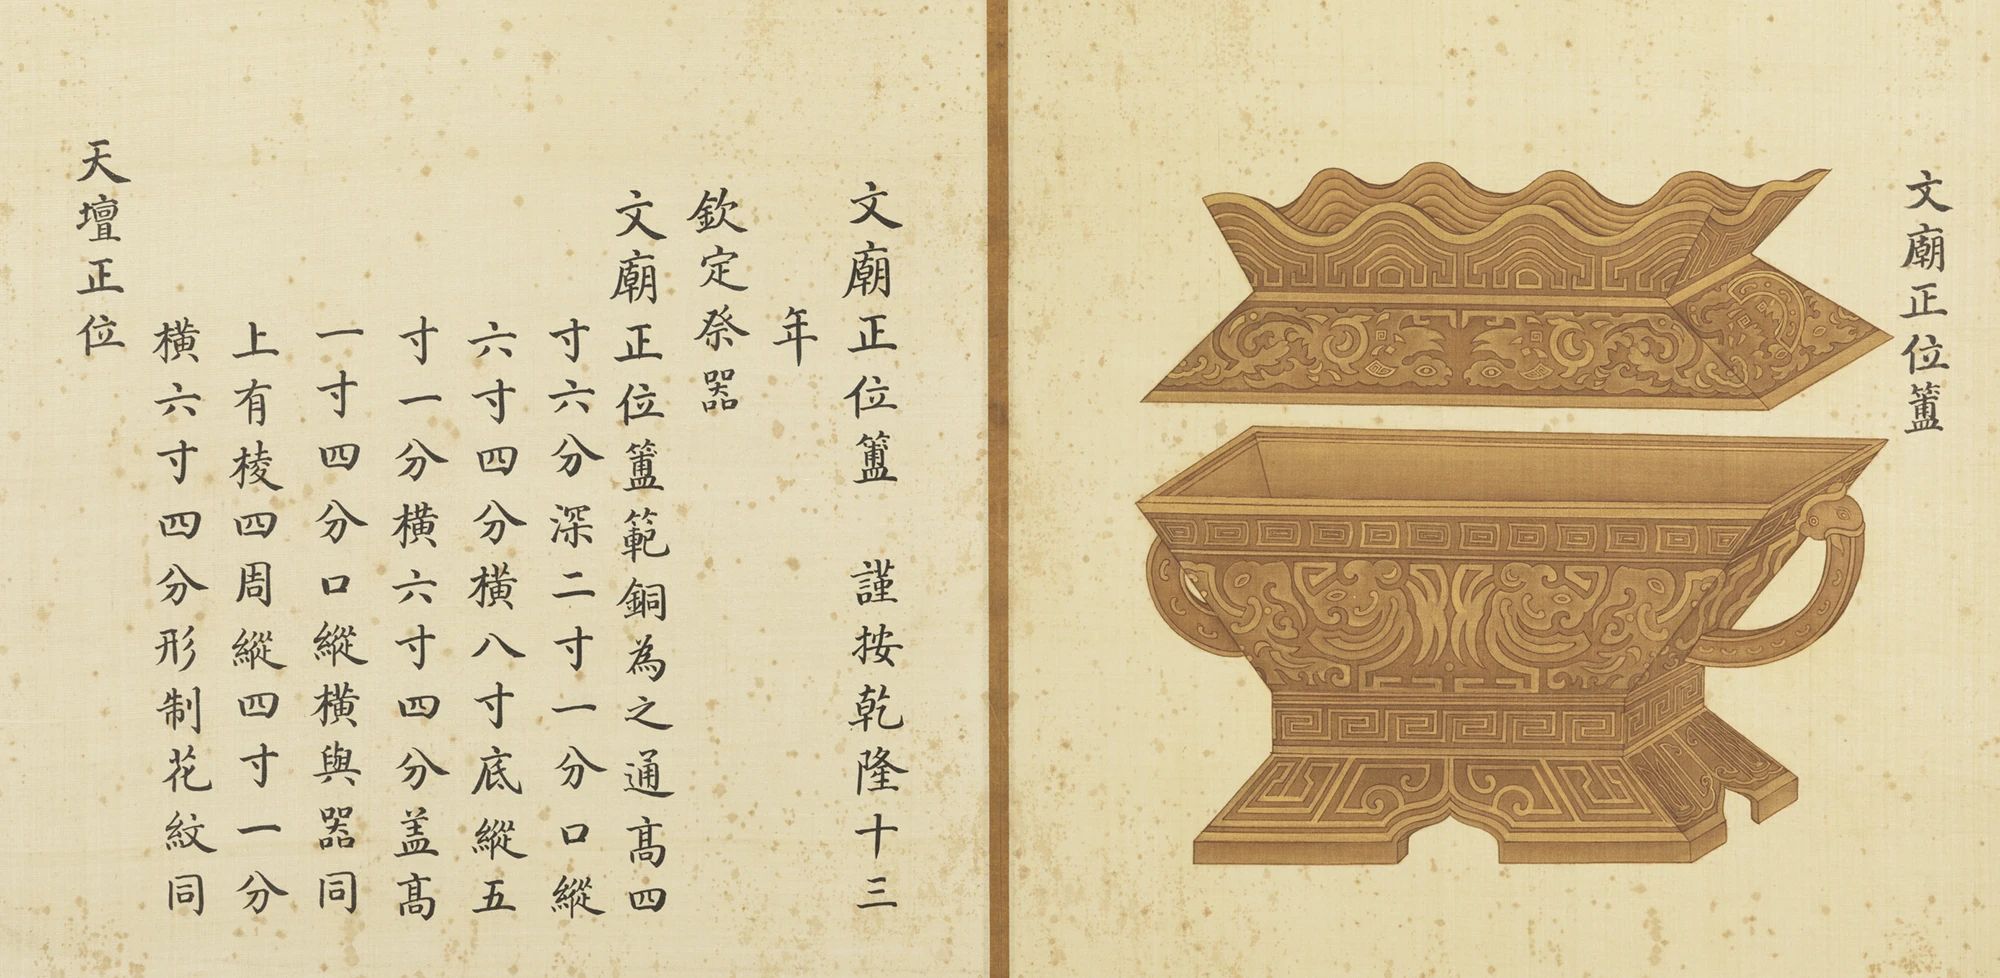 文廟正位簠
文廟正位簠　謹按乾隆十三
年
欽定祭器
文廟正位簠範銅為之通高四
寸六分深二寸一分口縱
六寸四分橫八寸底縱五
寸一分橫六寸四分盖高
一寸四分口縱橫與器同
上有棱四周縱四寸一分
橫六寸四分形制花紋同
天壇正位